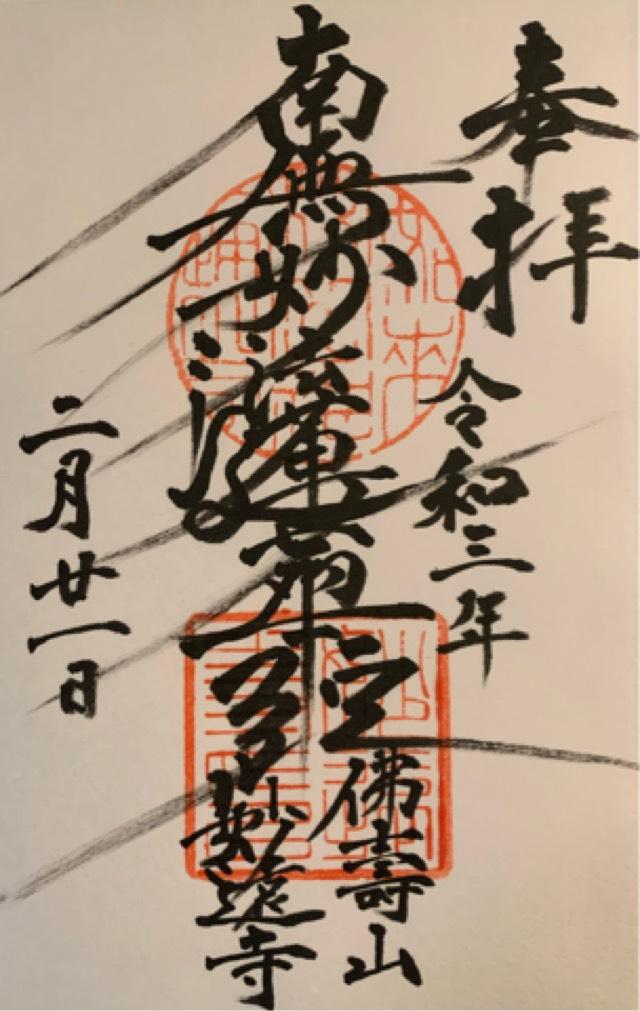 奉拝
令和三年
南無妙法蓮華經
二月廿一日
佛壽山
妙遠寺